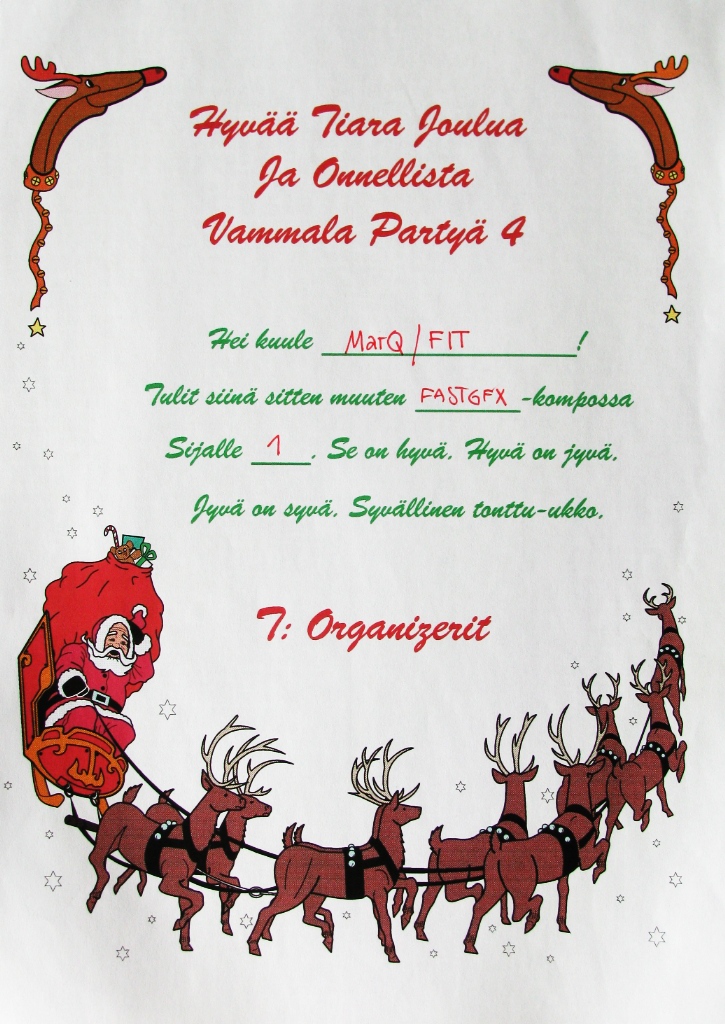 Hyvää Tiara Joulua
Ja Onnellista
Vammala Partyä 4
Hei kuule MarQ/FIT!
Tulit siinä sitten muuten FASTGFX-kompossa
Sijalle 1. Se on hyvä. Hyvä on jyvä.
Jyvä on syvä. Syvällinen tonttu-ukko.
T: Organizerit